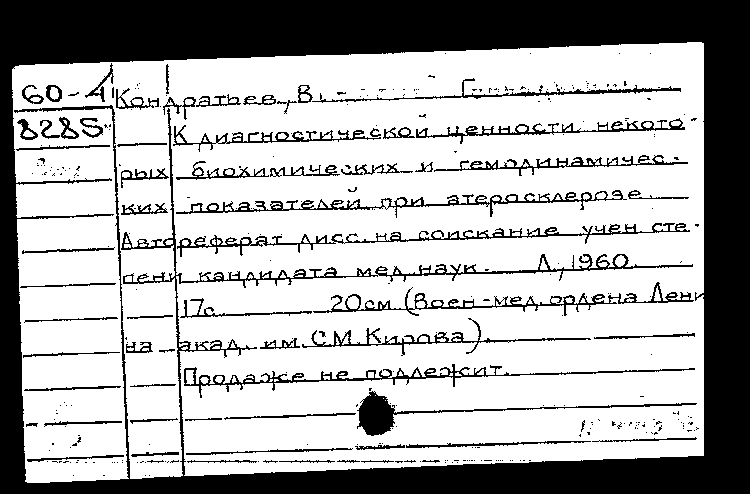 60-4 Кондратьев, В
8285 К диагностической ценности некото-
рых биохимических и гемодинамичес-
ких показателей при атеросклерозе.
Автореферат дисс. на соискание учен. сте-
пени кандидата мед. наук. Л., 1960.
17с. 20см (Воен-мед. ордена Лени
на акад. им. С.М. Кирова).
Продаже не подлежит.